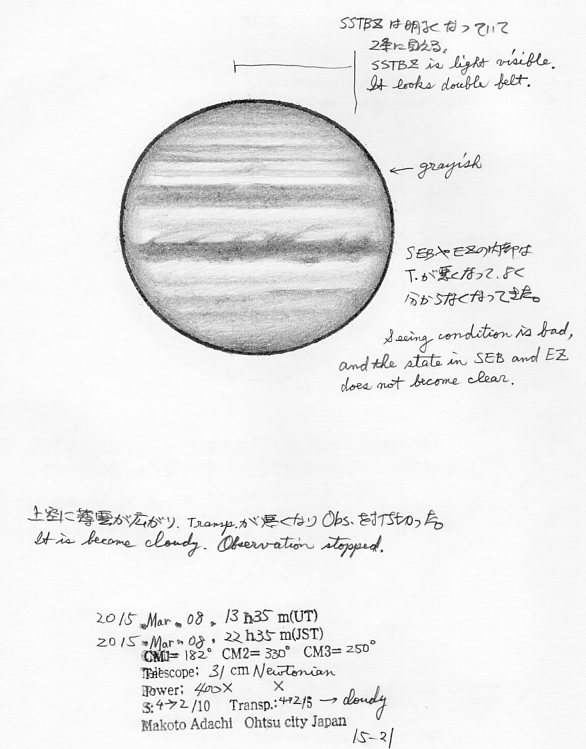 SSTBZは明るくなっていて
2条に見える。
SSTBZ is light visible.
It looks double belt.
← grayish
SEBやEZの内部は
T.が悪くなって、よく
分からなくなってきた。
Seeing condition is bad,
and the state in SEB and EZ
does not become clear.
上空に薄雲が広がり、Transp.が悪くなりObs.を打ち切った。
It is became cloudy. Observation stopped.
2015.Mar.08, 13 h35 m(UT)
2015.Mar.08, 22 h35 m(JST)
CM1=182° CM2=330° CM3=250°
Telescope: 31 cm Newtonian
Power: 400× ×
S:4→2/10 Transp.:4→2/5 → cloudy
Makoto Adachi Ohtsu city Japan
15-21